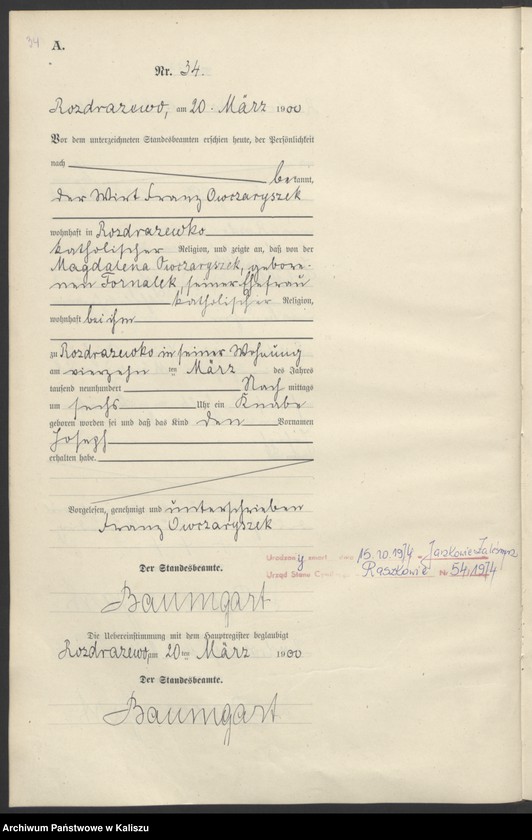 34
A.
Nr. 34.
Rozdrazewo, am 20. März 1900
Vor dem unterzeichneten Standesbeamten erschien heute, der Persönlichkeit
nach
bekannt,
der Wirt Franz Owczaryszek
wohnhaft in Rozdrazewko
katholischer Religion, und zeigte an, daß von der
Magdalena Owczaryszek, gebore-
nen Fornalek, seiner Ehefrau
katholischer Religion,
wohnhaft bei ihm
zu Rozdrazewko in seiner Wohnung
am vierzehn ten März des Jahres
tausend neunhundert Nach mittags
um sechs Uhr ein Knabe
geboren worden sei und daß das Kind den Vornamen
Joseph
erhalten habe.
Vorgelesen, genehmigt und unterschrieben
Franz Owczaryszek
Der Standesbeamte.
Baumgart
Die Uebereinstimmung mit dem Hauptregister beglaubigt
Rozdrazewo am 20 ten März 1900
Der Standesbeamte.
Baumgart
15.10.1974
Urząd Stanu Raszkowie Nr 54/1974
Archiwum Państwowe w Kaliszu